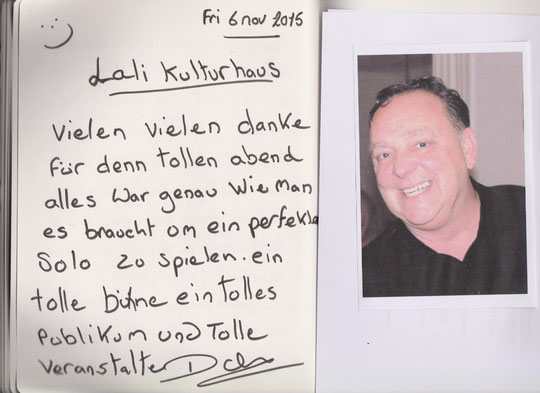 Fri 6 nov 2015
Lali Kulturhaus
Vielen vielen danke
für denn tollen abend
alles war genau wie man
es braucht om ein perfekte
Solo zu spielen. ein
tolle bühne ein tolles
Publikum und Tolle
Veranstalter